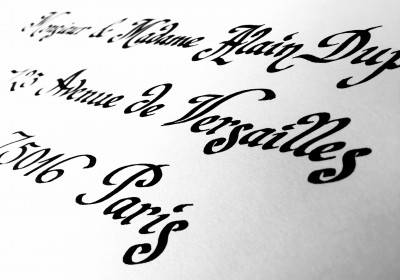 Monsieur & Madame Alain Dup
Avenue de Versailles
75016 Paris